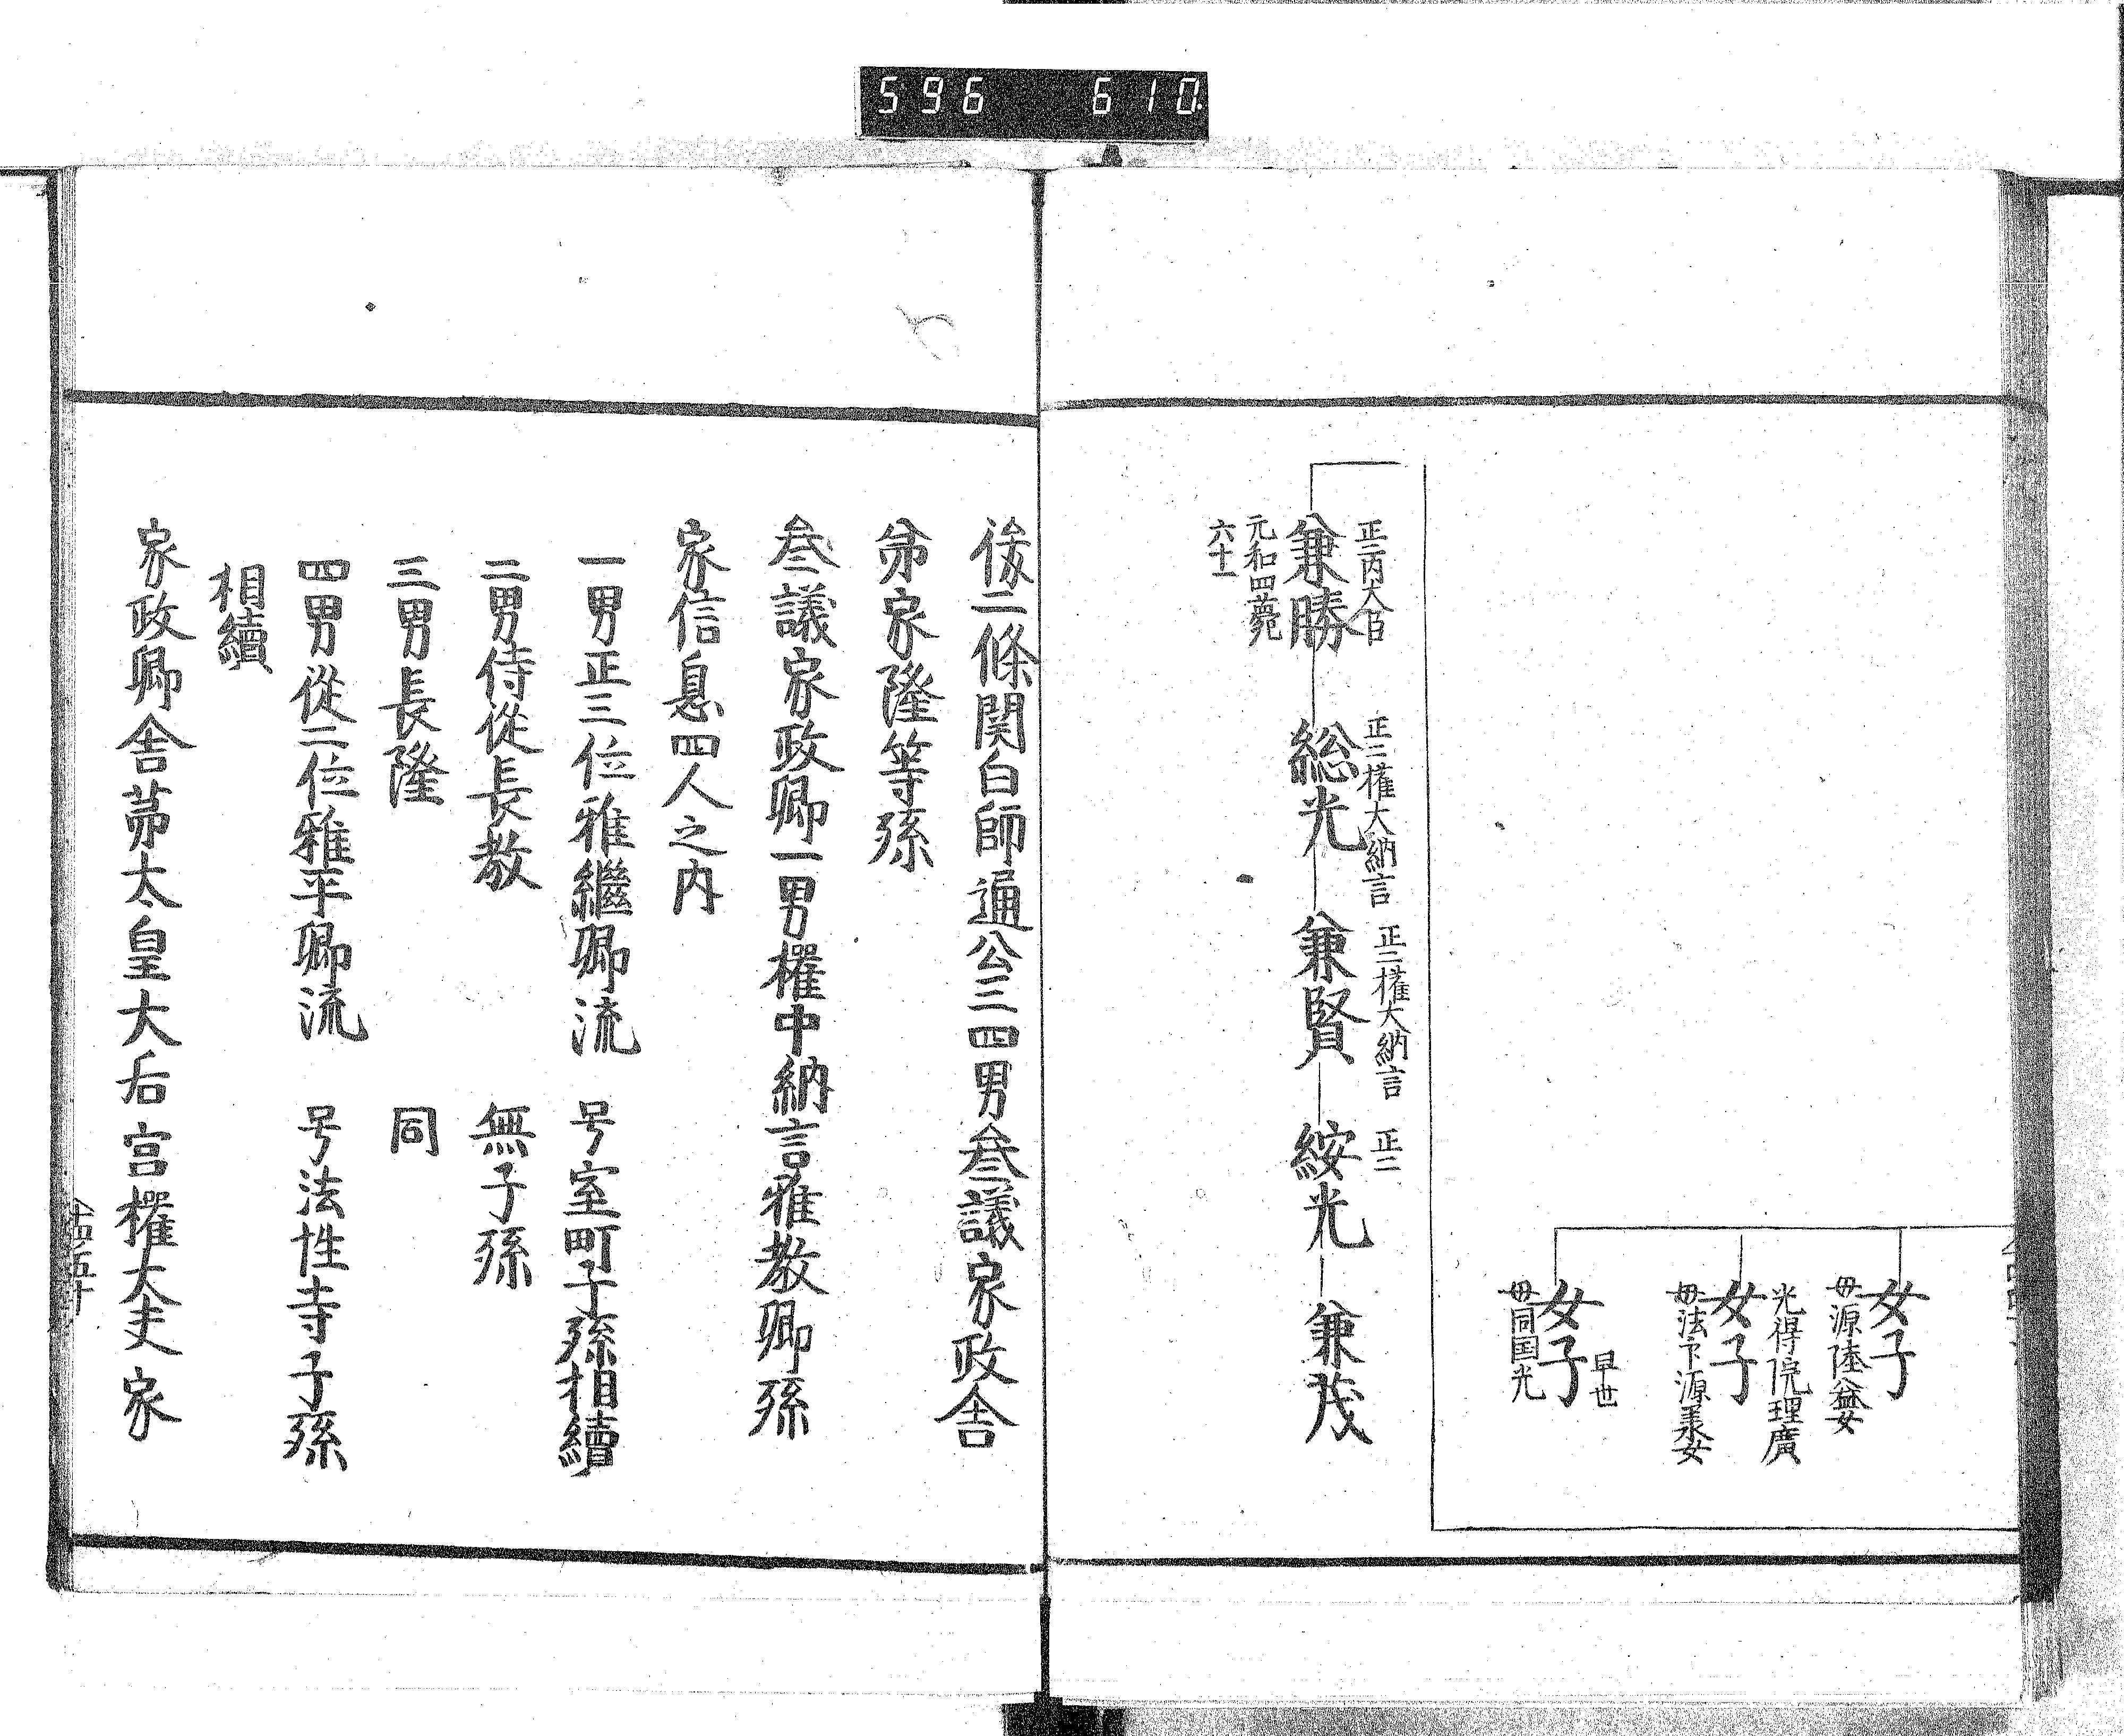 596 610
女子
母源陸益女
女子
光得院理廣
母法下源兼女
女子
早世
母同国光
兼勝
正二内大臣
元和四薨
六十一
総光
正二權大納言
兼賢
正二權大納言
綏光
正二
兼茂
後二條関白師通公三四男叅議家政舎
弟家隆等孫
叅議家政卿一男權中納言雅教卿孫
家信息四人之内
一男正三位雅繼卿流 号室町子孫相續
二男侍從長教 無子孫
三男長隆 同
四男從二位雅平卿流 号法性寺子孫
相續
家政卿舎苐太皇大后宮權大夫家